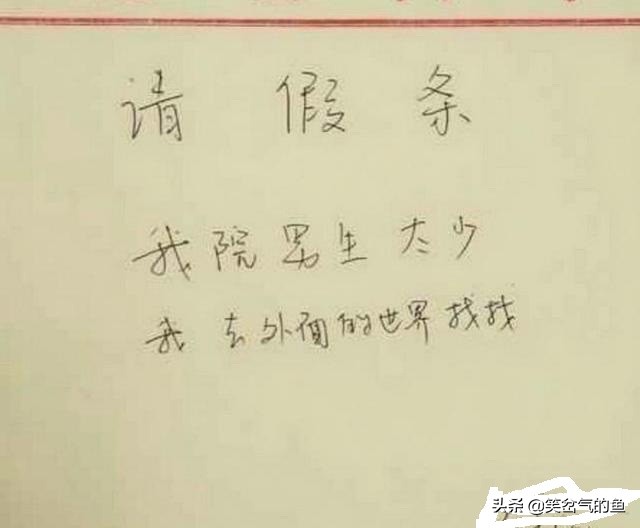 请假条
我院男生太少
我去外面的世界找找
头条 @笑岔气的鱼